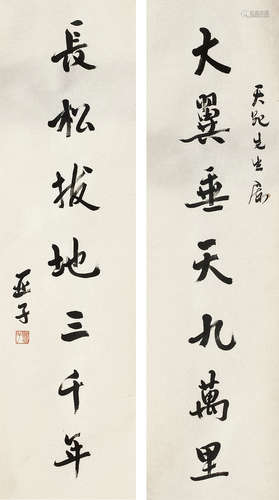 天貺先生属
大翼垂天九萬里
長松拔地三千年
亚子